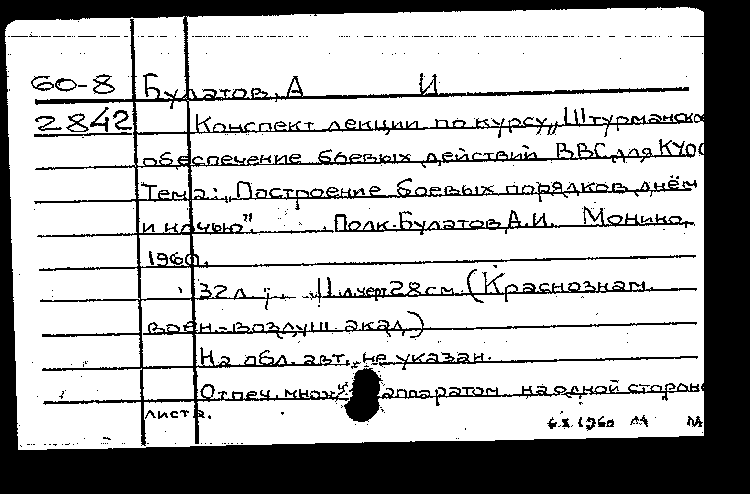 60-8 Булатов, А И
2842 Конспект лекции по курсу „Штурманско
обеспечение боевых действий ВВС для КУОС
Тема: „Построение боевых порядков днём
и ночью". Полк. Булатов А.И. Монино,
1960.
32 л.; 11 л. черт 28 см. (Краснознам.
воен.-воздуш. акад.)
На обл. авт. не указан.
Отпеч. множ. аппаратом на одной стороне
листа.
6 X 1960 М М